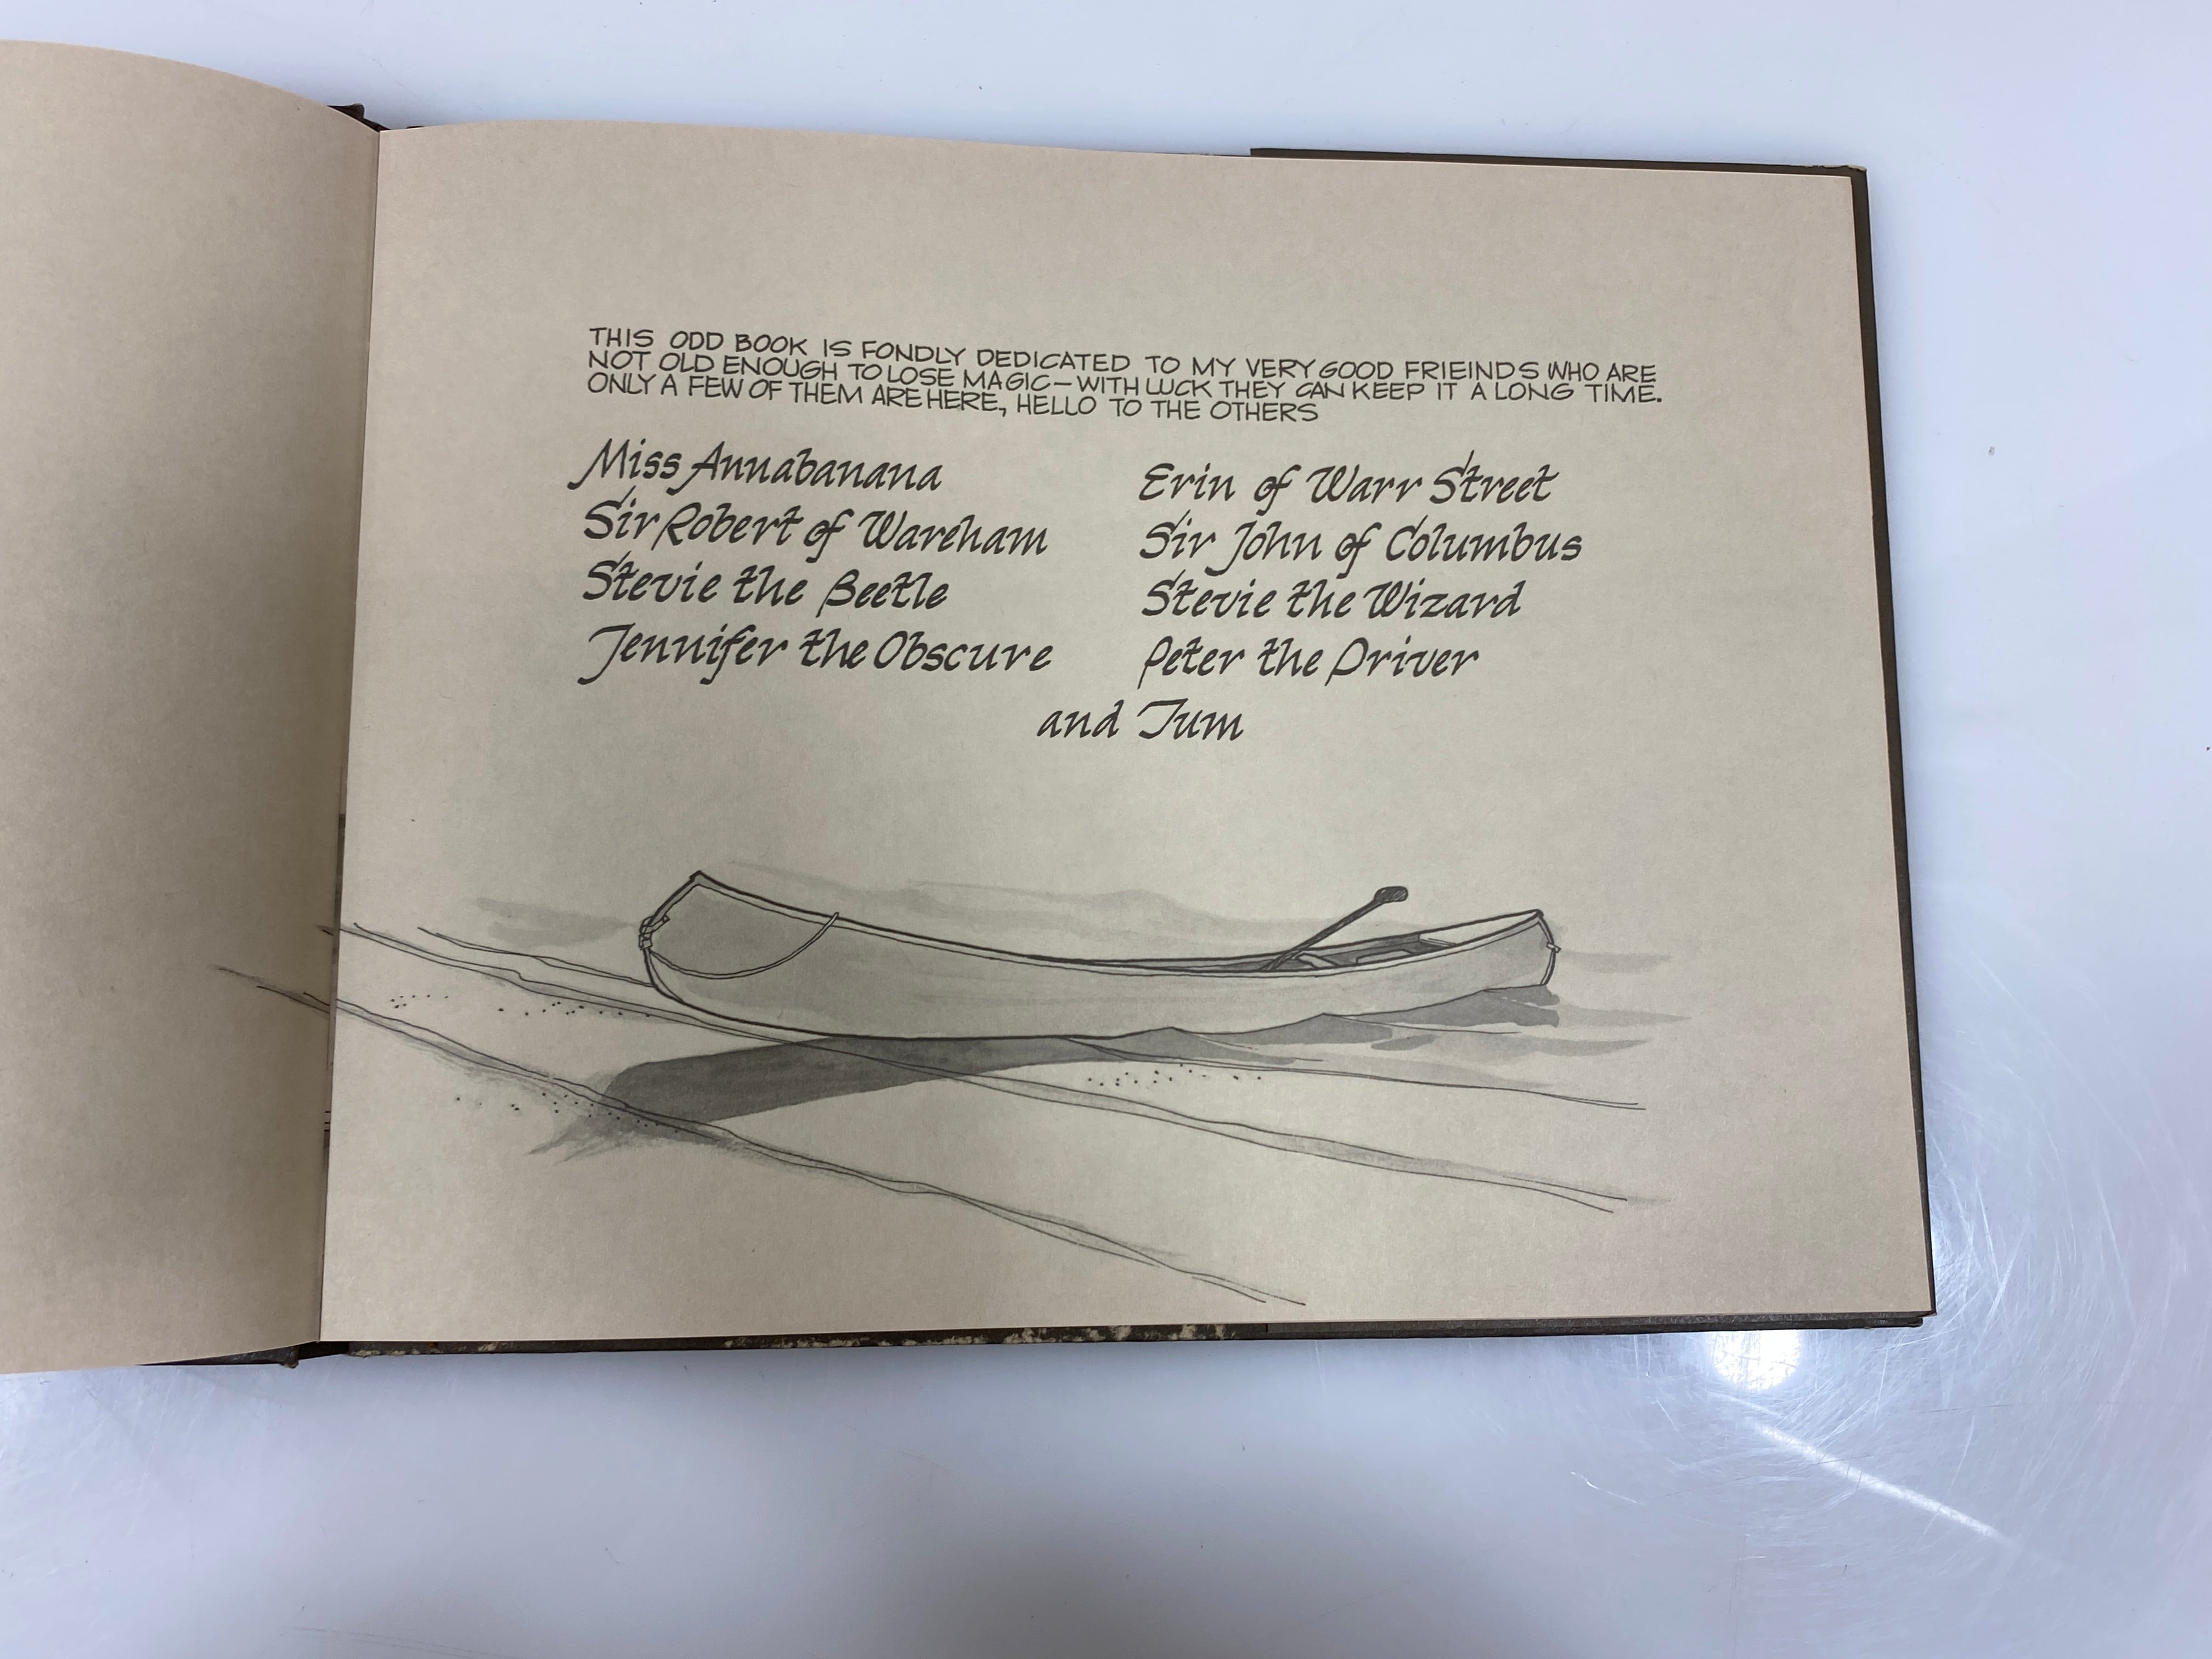 THIS ODD BOOK IS FONDLY DEDICATED TO MY VERY GOOD FRIEINDS WHO ARE
NOT OLD ENOUGH TO LOSE MAGIC—WITH LUCK THEY CAN KEEP IT A LONG TIME.
ONLY A FEW OF THEM ARE HERE, HELLO TO THE OTHERS
Miss Annabanana
Sir Robert of Wareham
Stevie the Beetle
Jennifer the Obscure
Erin of Warr Street
Sir John of Columbus
Stevie the Wizard
Peter the Driver
and Tum